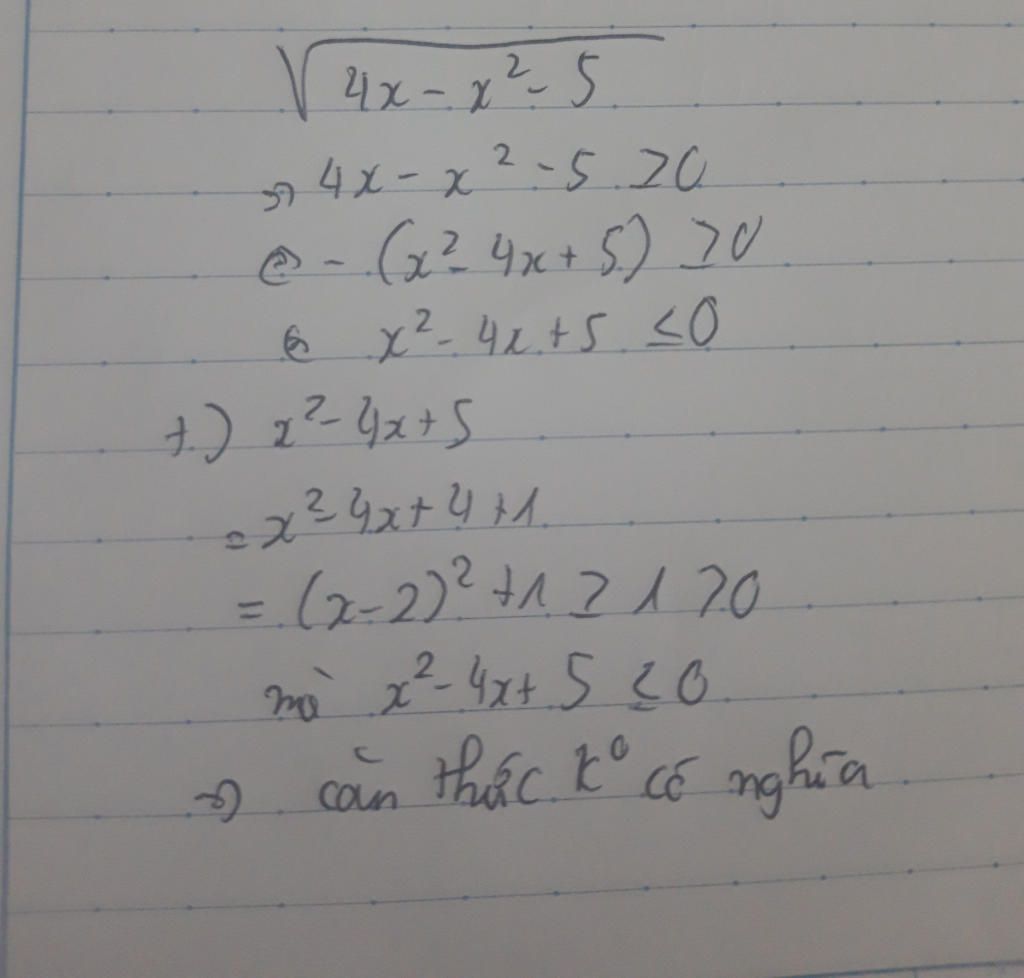 √(4x - x² - 5)
⇒ 4x - x² - 5 ≥ 0
⇔ - (x² - 4x + 5) ≥ 0
⇔ x² - 4x + 5 ≤ 0
+) x² - 4x + 5
= x² - 4x + 4 + 1
= (x - 2)² + 1 ≥ 1 > 0
mà x² - 4x + 5 ≤ 0
⇒ căn thức k⁰ có nghĩa